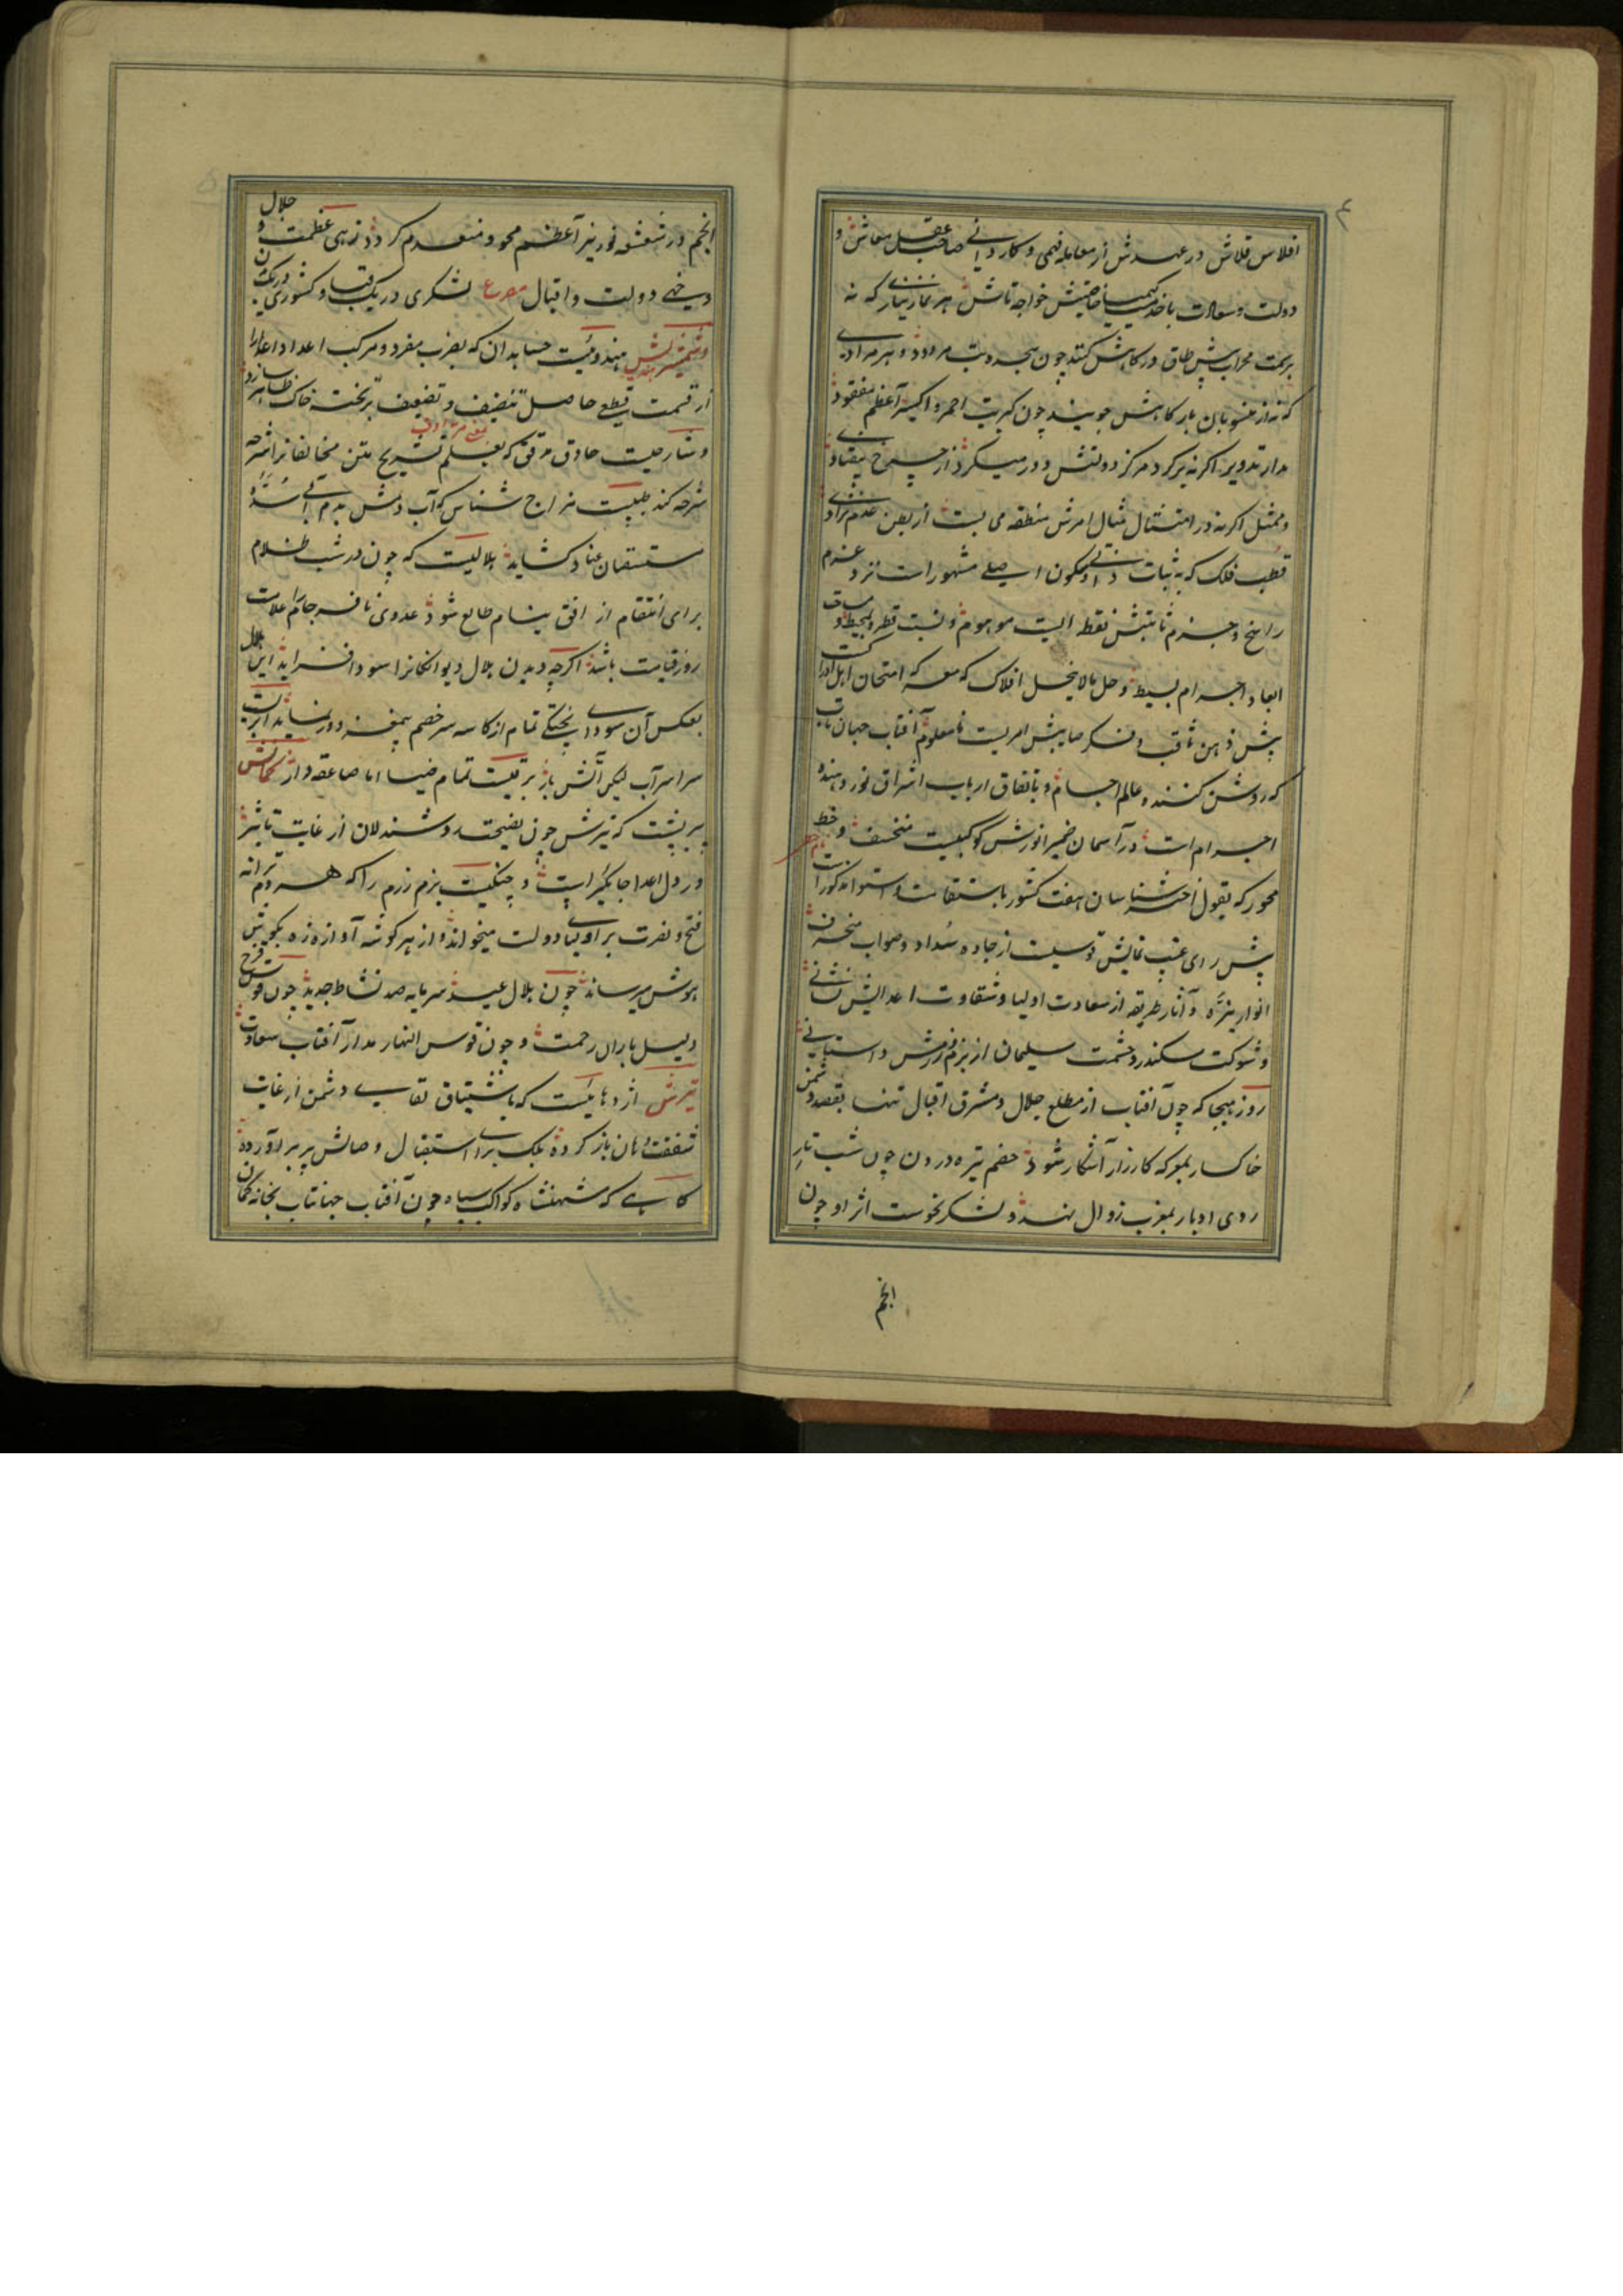 ۴
افلاس قلاش در عهدش از معامله فهمی و کاردانی صاحب عقل معاش و
دولت و سعادت با خدمت کیمیا خاصیتش خواجه تاش هر نماز نیازی که نه
بسمت محراب پیش طاق درگاهش کنند چون سجده بت مردود و هر مرادی
که نه از منسوبان بارگاهش جویند چون کبریت احمر و اکسیر اعظم مفقود
مدار تدویر اگر نه بر گرد مرکز دولتش دور میکرد از چرخ بیفتادی
و ممثل اگر نه در امتثال مثال امرش منطقه می بست از بطن عدم نزادی
قطب فلک که به ثبات ذاتی و سکون اصلی مشهور است نزد عزم
راسخ و جزم ثابتش نقطه ایست موهوم و نسبت قطر و محیط و مساحت
ابعاد و اجرام بسیط و حل مالاینحل افلاک که معرکه امتحان اهل ادراکست
پیش ذهن ثاقب و فکر صایبش امریست نامعلوم آفتاب جهان تاب
که روشن کننده عالم اجسام و باتفاق ارباب اشراق نور دهنده
اجرام است در آسمان ضمیر انورش کوکبیست منخسف و خط
محور که بقول اخترشناسان هفت کشور باستقامت و استوا مذکور است
پیش رای غیب نمایش قوسیست از جاده سداد و صواب منحرف
انوار منزه و آثار طریقه از سعادت اولیا و شقاوت اعدایش نشانی
و شوکت سکندر و حشمت سلیمان از بزم و رزمش داستانی
روز هیجا که چون آفتاب از مطلع جلال و مشرق اقبال تنها بقصد دشمن
خاکسار بمعرکه کارزار آشکار شود خصم تیره درون چون شب تار
روی ادبار بمغرب زوال نهد و لشکر نحوست اثر او چون
انجم
انجم در شعشعه نور نیر اعظم محو و منعدم گردد زهی عظمت و جلال
و خهی دولت و اقبال مصرع لشکری در یک قبا و کشوری در یک بدن
و شمشیر هندیش هندوئیست حسابدان که بضرب مفرد و مرکب اعداد اعدا را
از قسمت قطع حاصل تنصیف و تضعیف بر تخته خاک ظاهر سازد
و شارحیست حاذق مدقق که بعلم تشریح متن مخالفانرا شرحه
شرحه کند طبیبیست مزاج شناس که آب دمش بدم آبی سده
مستسقیان عناد کشاید هلالیست که چون در شب ظلام
برای انتقام از افق نیام طالع شود عدوی نافرجام را علامت
روز قیامت باشد اگرچه دیدن هلال دیوانگانرا سودا فزاید این هلال
بعکس آن سودای پختگی تمام از کاسه سر خصم بیمغز دور نماید ابریست
سراسر آب لیکن آتش بار برقیست تمام ضیا اما صاعقه دار کمانش
پیریست که تیرش چون نصیحت روشندلان از غایت تاثیر
در دل اعدا جایگیر است و چنگیست بزم رزم را که هر دم ترانه
فتح و نصرت بر اولیا دولت میخواند و از هر گوشه آوازه زه بگوش
هوش میرساند چون هلال عید سرمایه صد نشاط جدید چون قوس قزح
دلیل باران رحمت و چون قوس النهار مدار آفتاب سعادت
تیرش اژدهایست که باشتیاق تقاسی دشمن از غایت
شفقت دهان باز کرده بلک برای استقبال وصالش پر برآورده
گاهی که شهنشاه کواکب سپاه چون آفتاب جهانتاب بخانه کمان